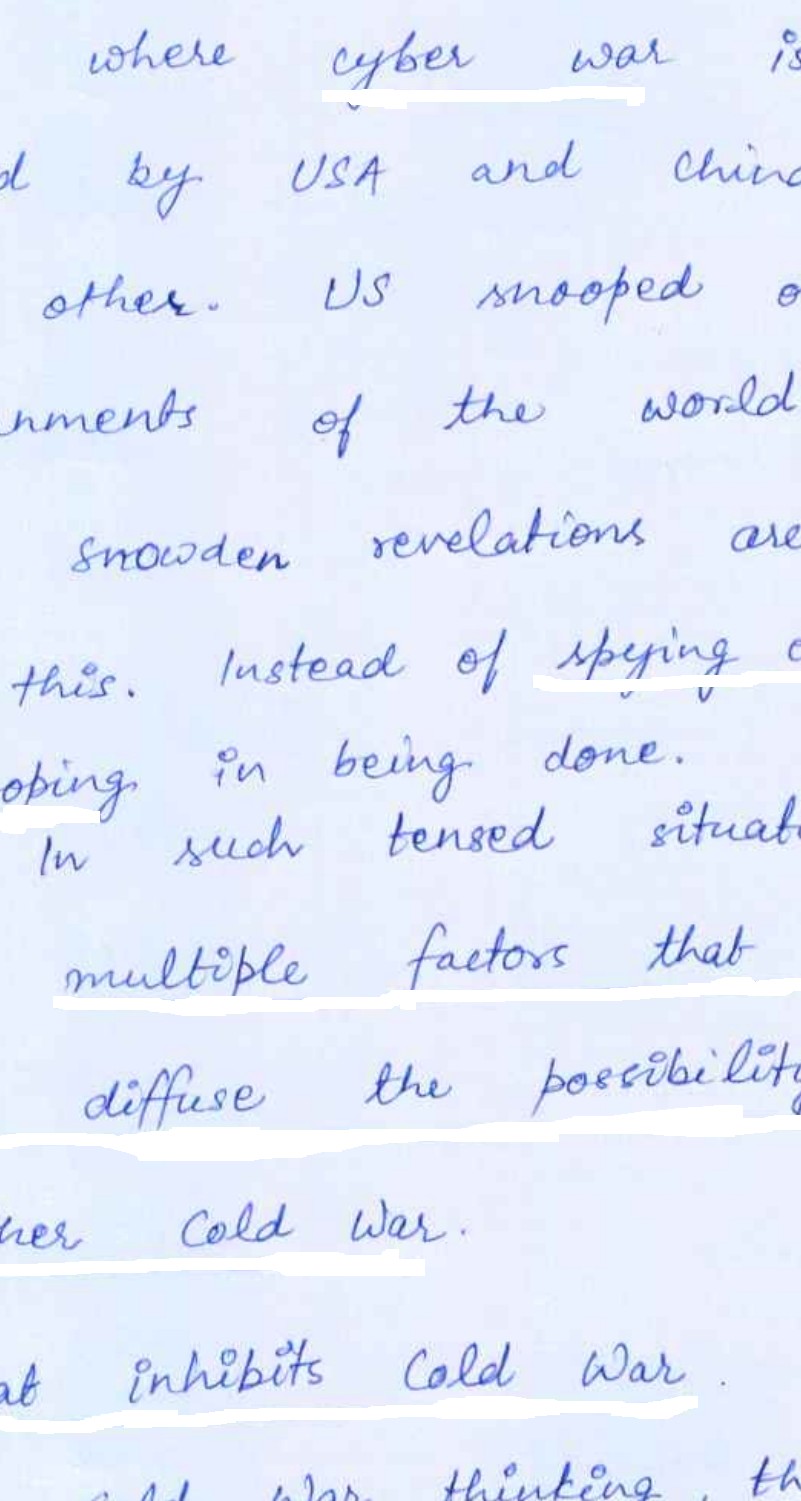 where cyber war is
d by USA and China
other. US snooped o
nments of the world
Snowden revelations are
this. Instead of spying
oping in being done.
In such tensed situat
multiple factors that
diffuse the possibility
her Cold War.
at inhibits Cold War.
cold war thinking, th